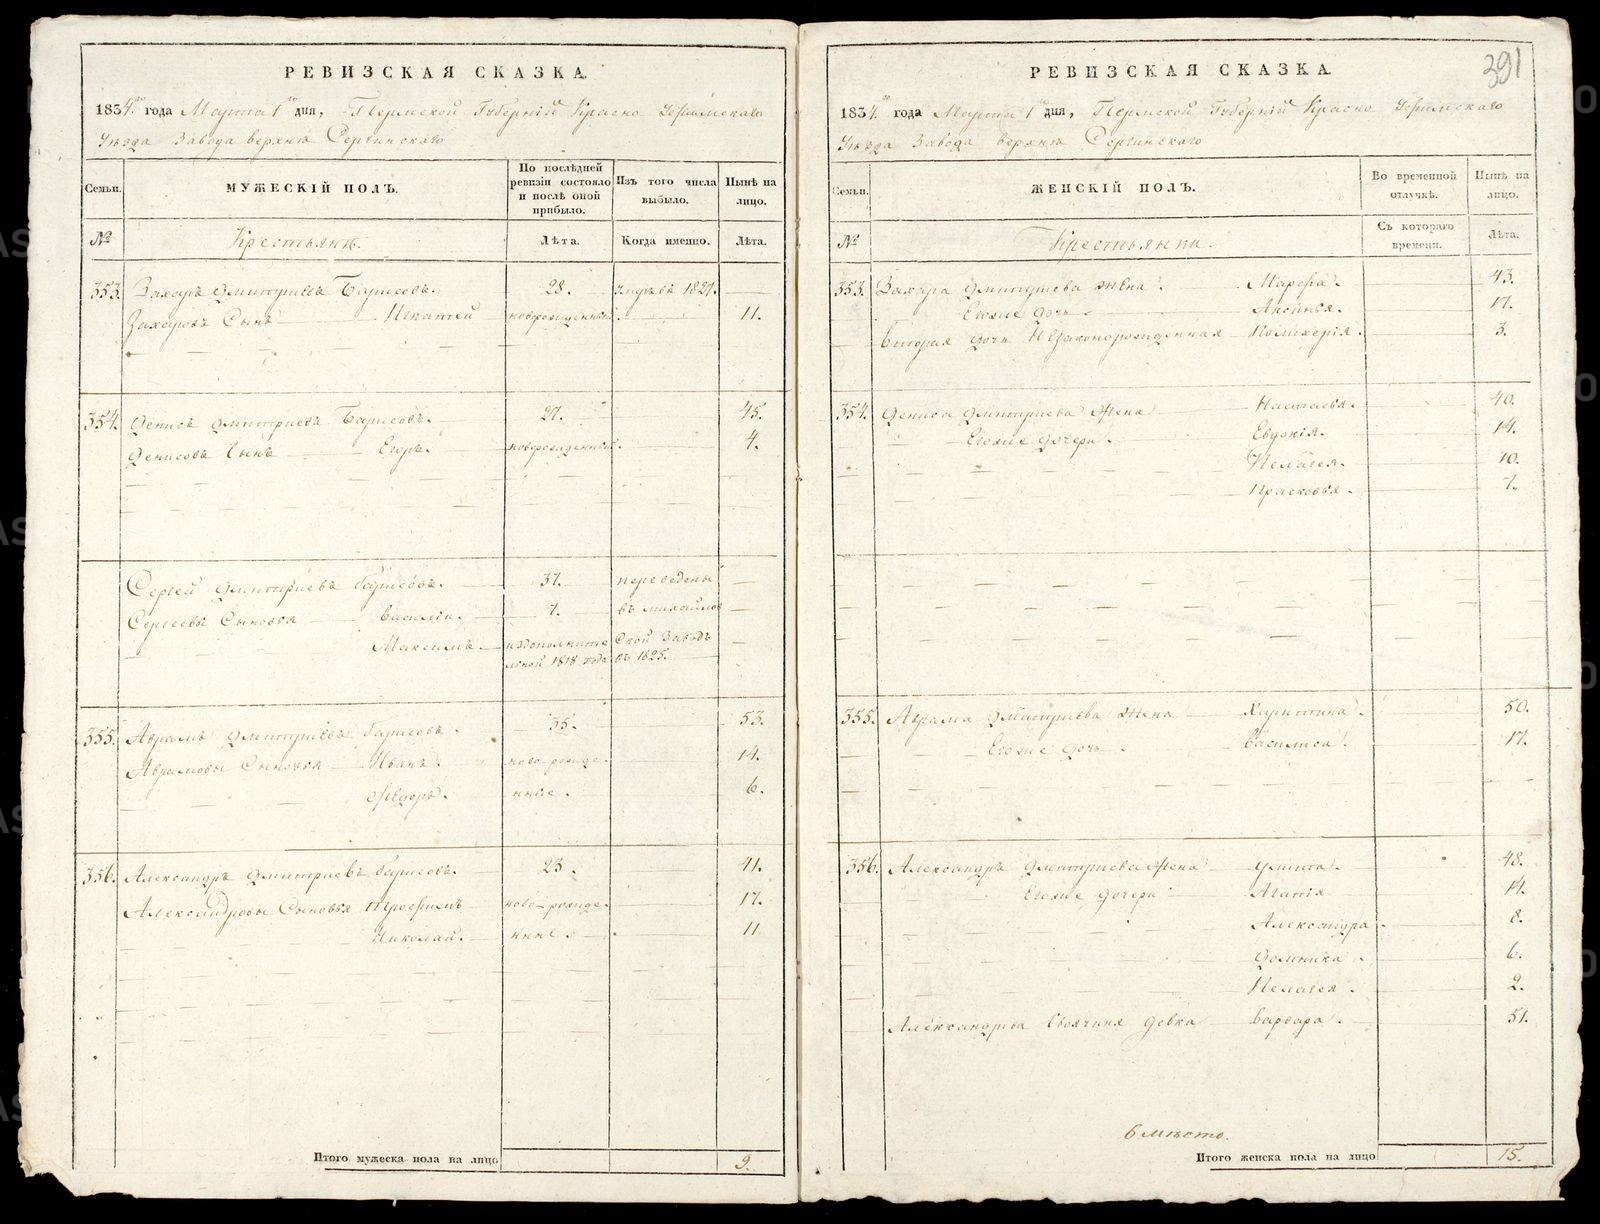 РЕВИЗСКАЯ СКАЗКА.
1834го года Марта 1го дня, Пермской Губерніи Красно Уфимскаго
Уѣзда Завода верхня Сергинскаго
Семьи.
МУЖЕСКІЙ ПОЛЪ.
По послѣдней
ревизіи состояло
и послѣ оной
прибыло.
Изъ того числа
выбыло.
Нынѣ на
лицо.
№
Крестьянъ.
Лѣта.
Когда именно.
Лѣта.
353. Захаръ Дмитріевъ Барисовъ. 28. Умре въ 1827.
Захаровъ Сынъ новорожденный. 11.
354. Денисъ Дмитріевъ Барисовъ. 27. 45.
Денисовъ Сынъ Егоръ. новорожденный. 4.
Сергей Дмитріевъ Барисовъ. 37. переведены
Сергеевы Сыновья Василій. 7. въ михайлов
Максимъ издополните ской Заводъ
льной 1818 года въ 1825.
355. Аврамъ Дмитріевъ Барисовъ. 35. 53.
Аврамовы Сыновья Иванъ. ново-рожде- 14.
Ѳедоръ. нные. 6.
356. Александръ Дмитріевъ Барисовъ. 23. 41.
Александровы Сыновья Трофимъ ново-рожде- 17.
Николай. нные. 11
Итого мужеска пола на лицо 9.
391
РЕВИЗСКАЯ СКАЗКА.
1834го года Марта 1го дня, Пермской Губерніи Красно Уфимскаго
Уѣзда Завода верхня Сергинскаго
Семьи.
ЖЕНСКІЙ ПОЛЪ.
Во временной
отлучкѣ.
Нынѣ на
лицо.
№
Крестьянки.
Съ котораго
времени.
Лѣта.
353. Захара Дмитріева жена Марфа. 43.
Егоже дочь Аксинья. 17.
Вторая дочь Незаконорожденная Полихерія. 3.
354. Дениса Дмитріева жена Настасья. 40.
Егоже дочери. Евдокія. 14.
Пелагея. 10.
Прасковья. 7.
355. Аврама Дмитріева жена Харитина. 50.
Егоже дочь. Василиса. 17.
356. Александръ Дмитріева жена Улита. 48.
Егоже дочери Агапія 14.
Александра 8.
Домника. 6.
Пелагея. 2.
Александрова Своячиня девка Варвара. 51.
Вмѣсто.
Итого женска пола на лицо 15.